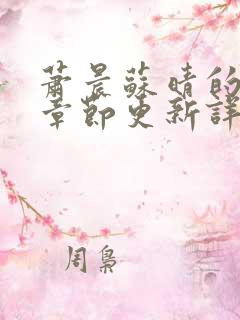 蕭晨蘇晴的
章節更新詳
周梟